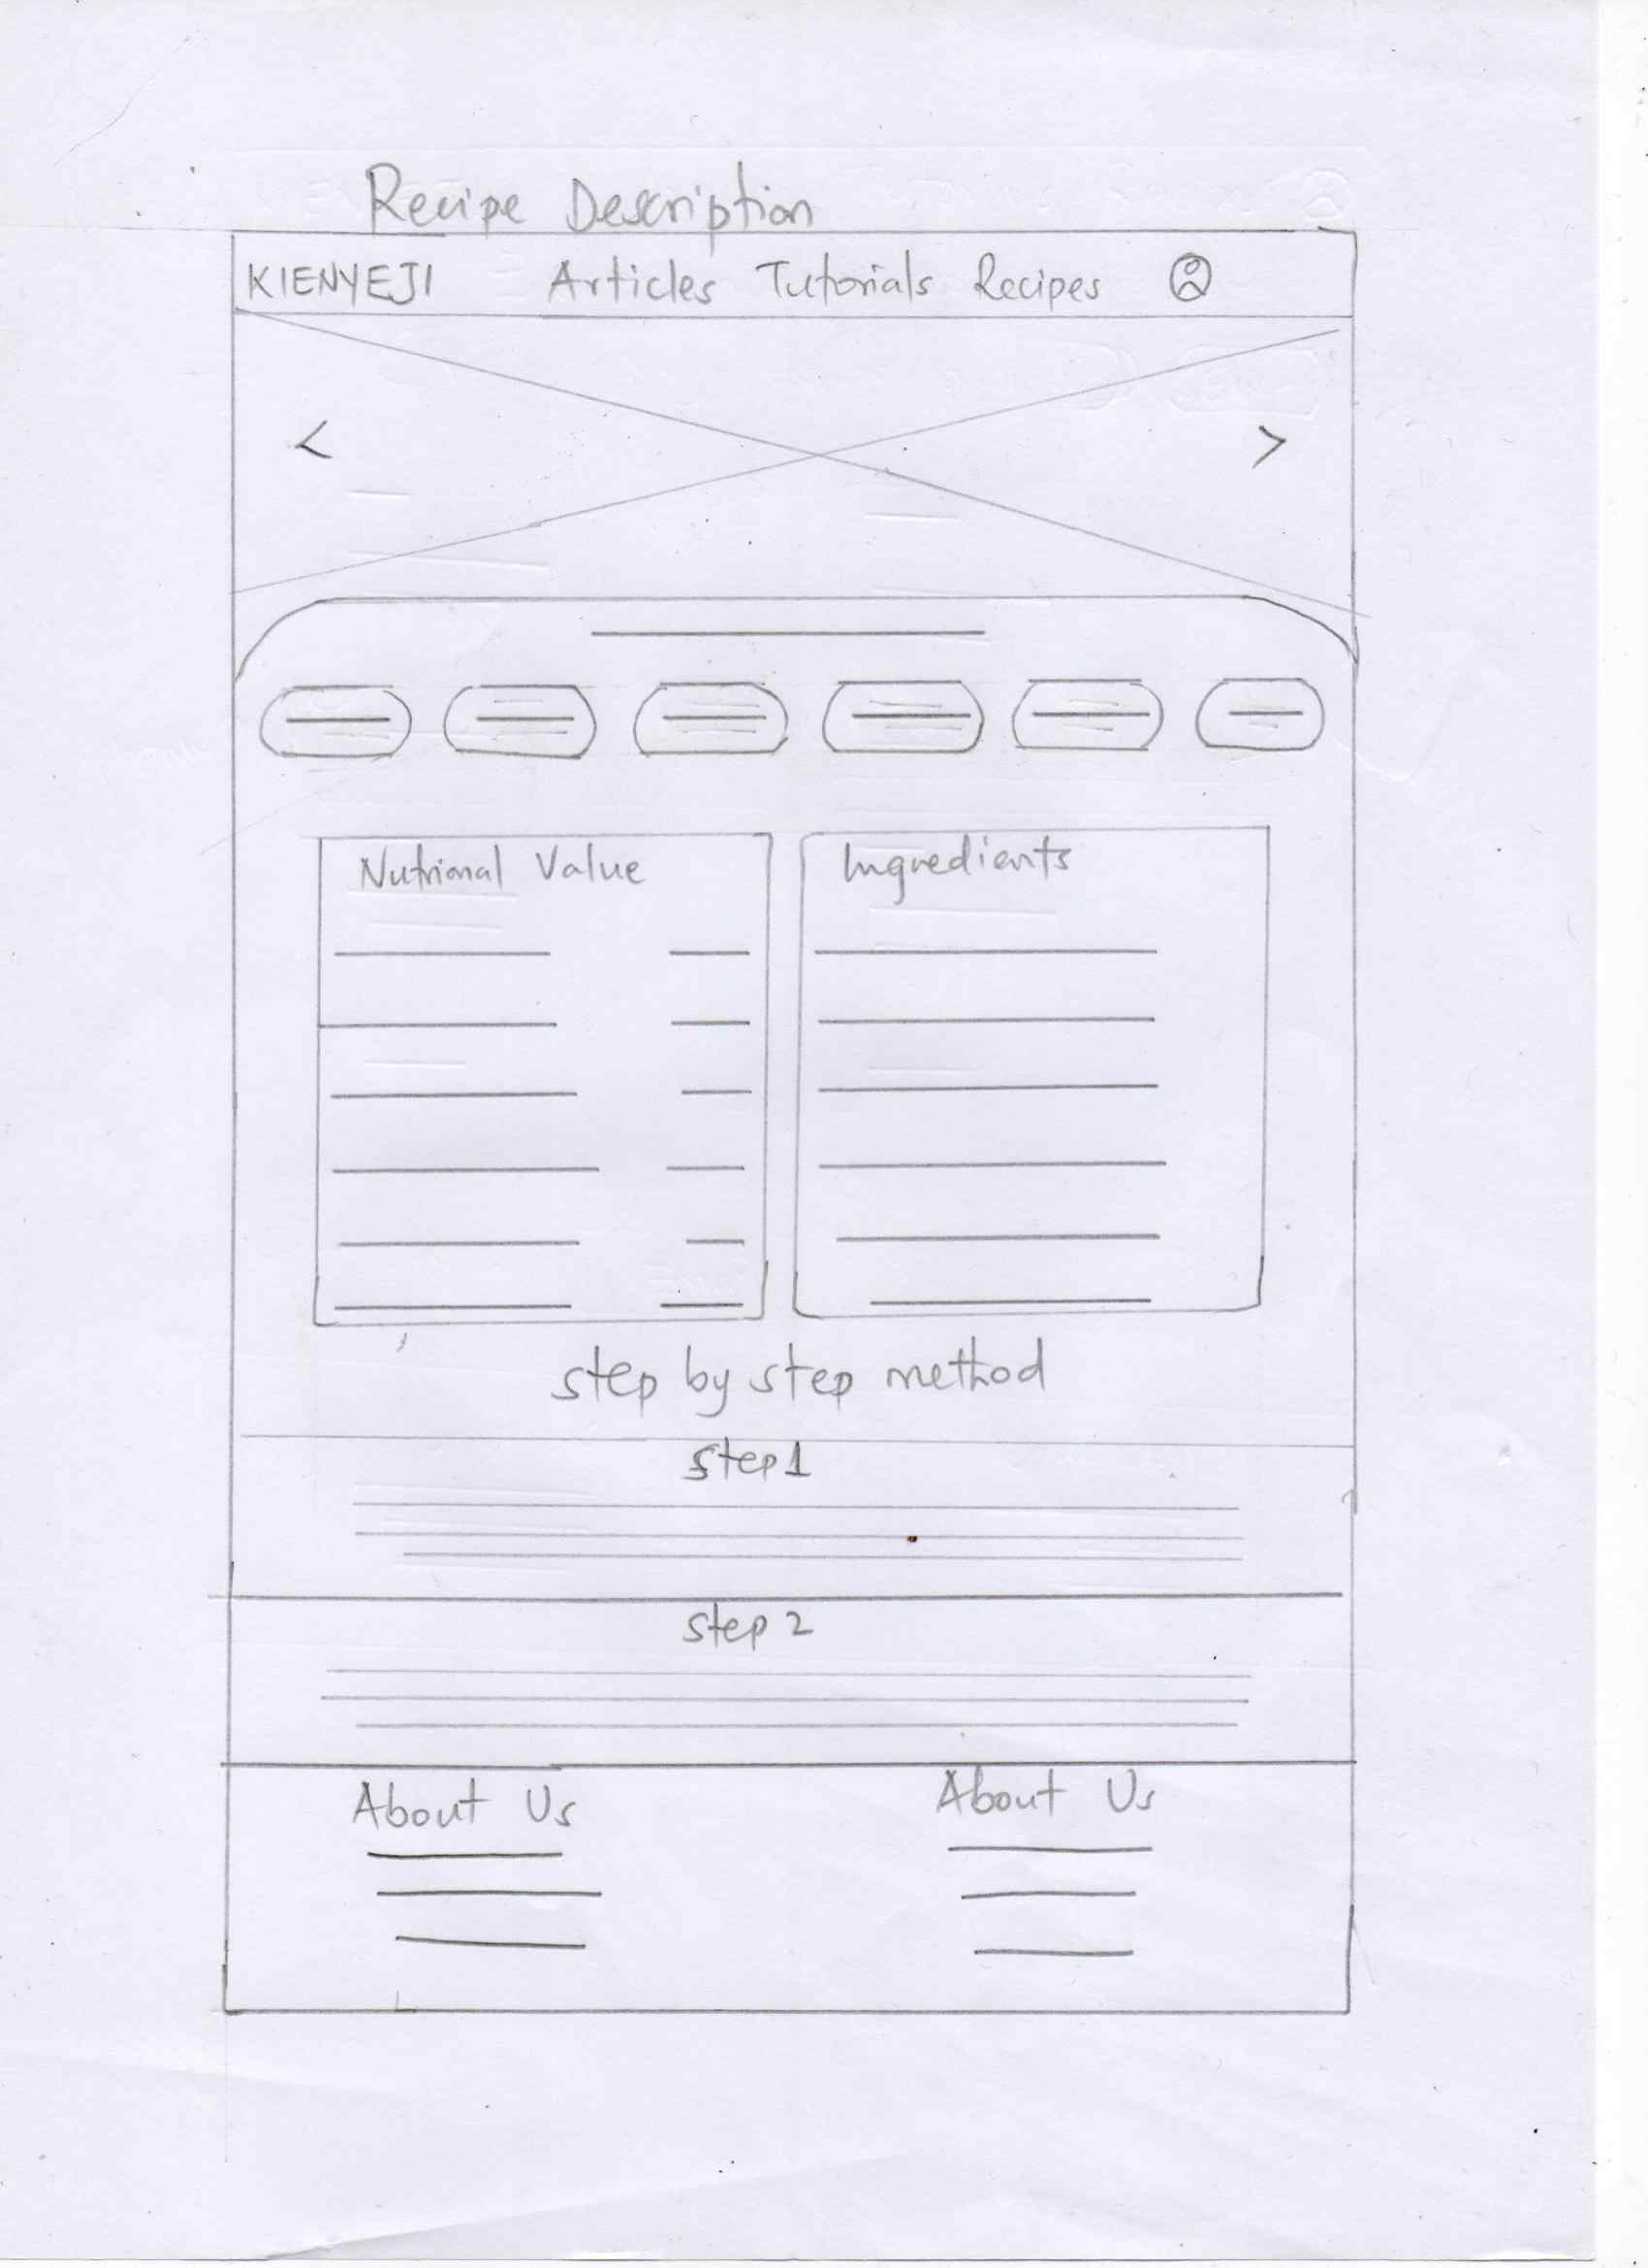 Recipe Description
KIENYEJI Articles Tutorials Recipes
< >
Nutrional Value Ingredients
step by step method
step 1
step 2
About Us About Us